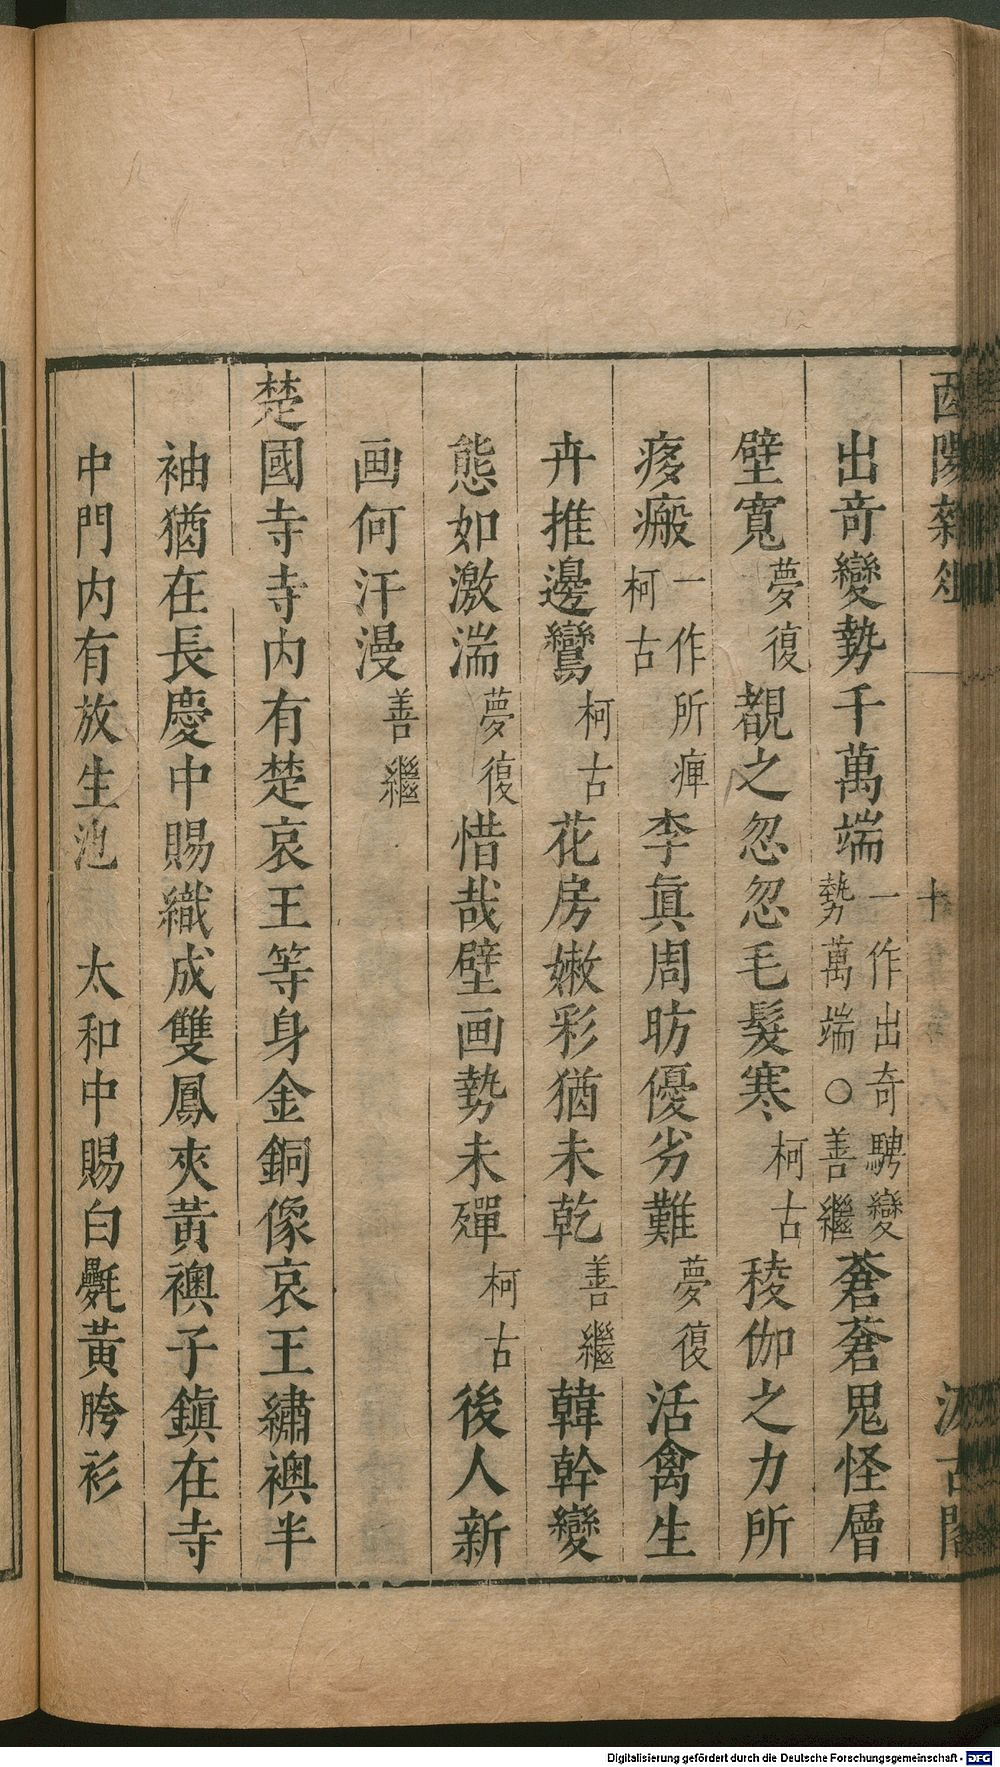 酉陽雜俎 十 汲古閣
出奇變勢千萬端一作出奇騁變勢萬端○善繼蒼蒼鬼怪層
壁寬夢復覩之忽忽毛髮寒柯古稜伽之力所
疼瘢一作所痺柯古李眞周昉優劣難夢復活禽生
卉推邊鸞柯古花房嫩彩猶未乾善繼韓幹變
態如激湍夢復惜哉壁画勢未殫柯古後人新
画何汗漫善繼
楚國寺寺内有楚哀王等身金銅像哀王繡襖半
袖猶在長慶中賜織成雙鳳夾黃襖子鎭在寺
中門内有放生池 太和中賜白氎黃胯衫
Digitalisierung gefördert durch die Deutsche Forschungsgemeinschaft - DFG